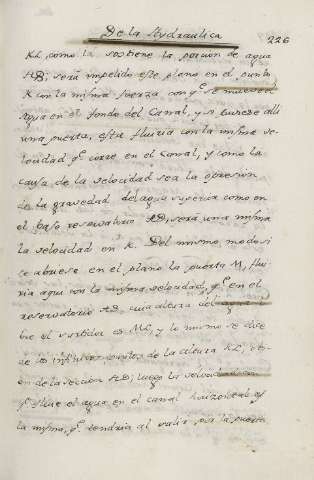 De la Hydraulica
226
KL, como la sostiene la porcion de agua
AB; será impelido este plano en el punto
K con la misma fuerza con qᵉ se mueve el
agua en el fondo del Canal, y si huviese alli
una puerta, esta fluiria con la misma ve-
locidad qᵉ corre en el Canal, y como la
causa de la velocidad sea la opresion
de la gravedad del agua superior como en
el vaso reservatorio AD, será una misma
la velocidad en K. Del mismo modo si
se abriese en el plano la puerta M, flui-
ria aqui con la misma velocidad, qᵉ en el
reservatorio AD, cuia altura del agua
bre el vertidor es MC, y lo mismo se dice
de los infinitos puntos de la altura KL,
en de la seccion AB; luego la velocidad con
qᵉ fluie el agua en el canal horizontal es
la misma, qᵉ tendria al salir por la puerta